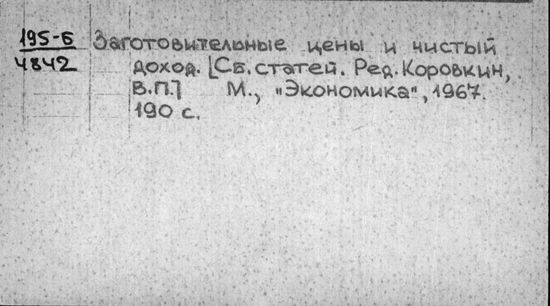 195-Б
4842
Заготовительные цены и чистый
доход. [Сб. статей. Ред. Коровкин,
В.П.] М., "Экономика", 1967.
190 с.